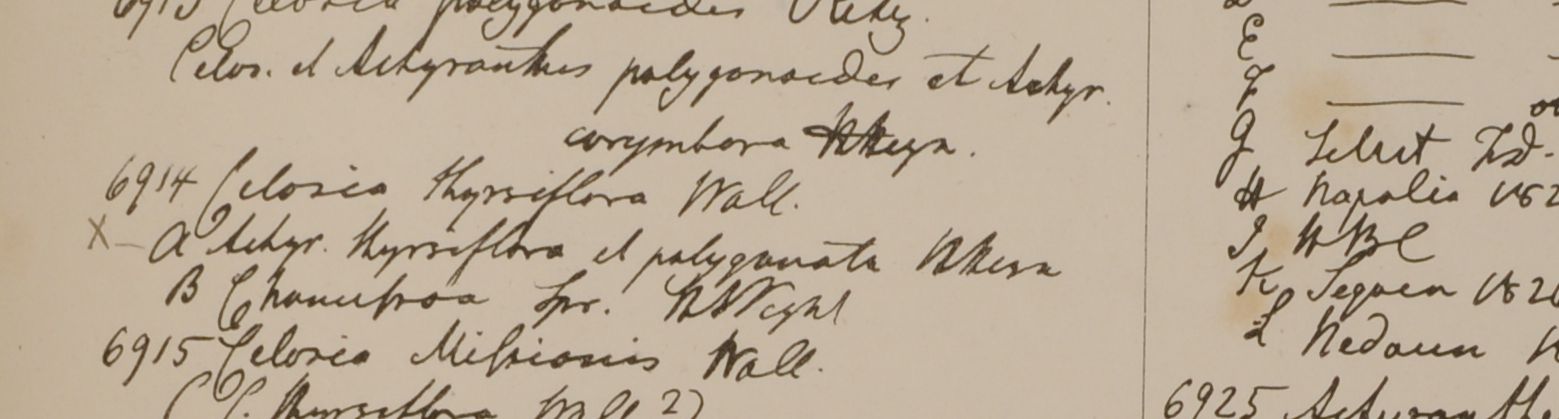 6913 Celosia polygonoides Retz.
Celos. et Achyranthus polygonoides et Achyr.
corymbora HHeyn.
6914 Celosia thyrsiflora Wall.
X — A Achyr. thyrsiflora et polygonata HHeyn
B Chamissoa Spr. HWight
6915 Celosia Missionis Wall.
(C. thyrsiflora Wall ?)
E
F
G Selhet Fd.
H Napalia 182
I HBC
K Segaen 182
L Nedoun
6925